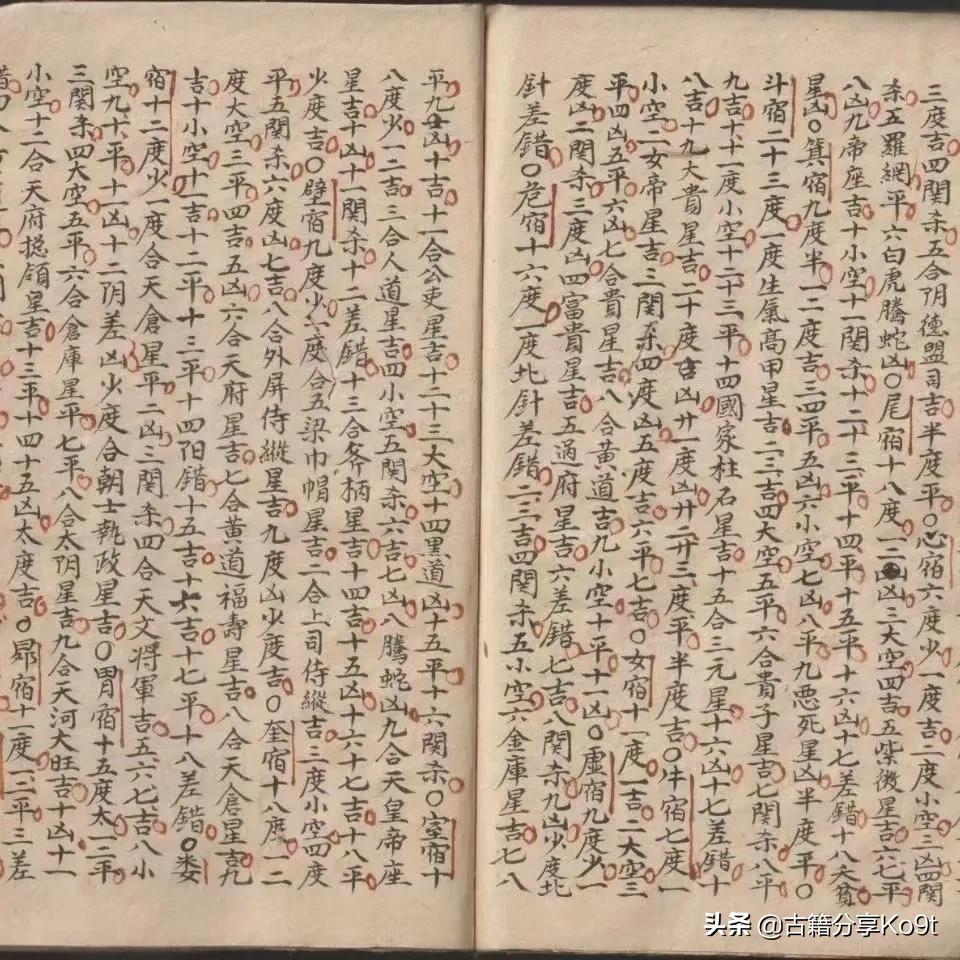 三度吉四関杀五合阴德盟司吉半度平〇心宿六度少一度吉二度小空三凶四関
杀五羅網平六白虎騰蛇凶〇尾宿十八度一二凶三大空四吉五紫微星吉六七平
八凶九帝座吉十小空十一関杀十二十三平十四平十五平十六凶十七差錯十八天贫
星凶〇箕宿九度半一二度吉三四平五凶六小空七凶八平九悪死星凶半度平〇
斗宿二十三度一度生氣高甲星吉二三吉四大空五平六合貴子星吉七関杀八平
九吉十十一度小空十二十三平十四國家柱石星吉十五合三元星十六凶十七差錯十
八吉十九大貴星吉二十度吉凶廿一度凶廿二廿三度平半度吉〇牛宿七度一
小空二女帝星吉三関杀四度凶五度吉六平七吉〇女宿十一度一吉二大空三
平四凶五平六凶七合貴星吉八合黄道吉九小空十平十一凶〇虛宿九度少一
度凶二関杀三度凶四富貴星吉五過府星吉六差錯七吉八関杀九凶少度北
針差錯〇危宿十六度一度北針差錯二三吉四関杀五小空六金庫星吉七八
平九凶十吉十一合公吏星吉十二十三大空十四黒道凶十五平十六関杀〇室宿十
八度少一二吉三合人道星吉四小空五関杀六吉七凶八騰蛇凶九合天皇帝座
星吉十凶十一関杀十二差錯十三合斧柄星吉十四吉十五凶十六十七吉十八平
少度吉〇壁宿九度少一度合五梁巾帽星吉二合上司侍縱吉三度小空四度
平五関杀六度凶七吉八合外屏侍縱星吉九度凶少度吉〇奎宿十八度一二
度大空三平四吉五凶六合天府星吉七合黄道福壽星吉八合天倉星吉九
吉十小空十一吉十二平十三平十四阳錯十五吉十六吉十七平十八差錯〇娄
宿十二度少一度合天倉星平二凶三関杀四合天文将軍吉五六七吉八小
空九十平十一凶十二阴差凶少度合朝士執政星吉〇胃宿十五度太一二平
三関杀四大空五平六合倉庫星平七平八合太阴星吉九合天河大旺吉十凶十一
小空十二合天府捴領星吉十三平十四十五凶太度吉〇昴宿十一度一二平三差
头条 @古籍分享Ko9t